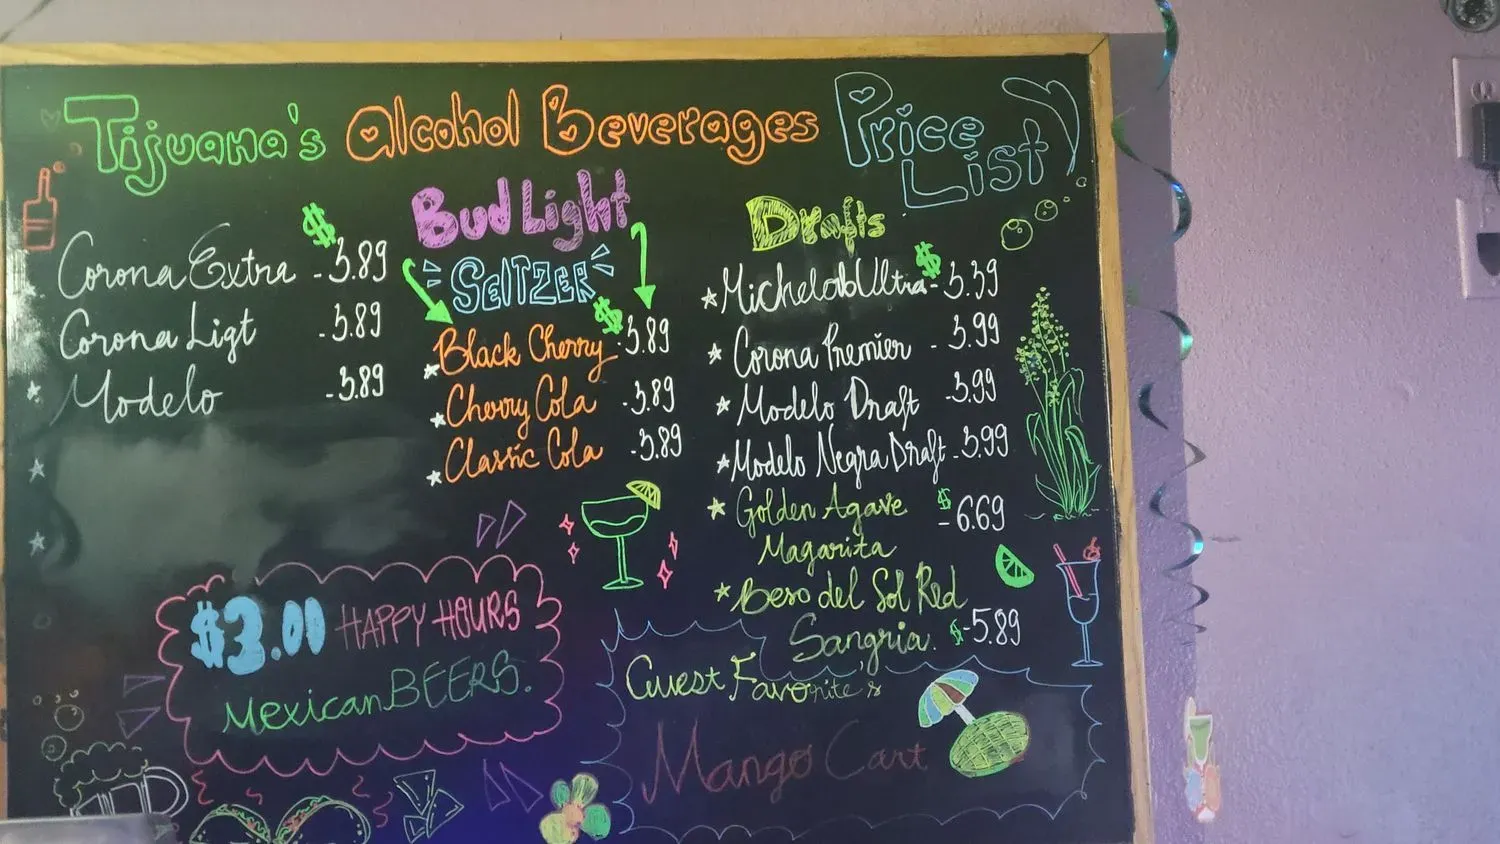 Tijuana's Alcohol Beverages Price List
$
Corona Extra - 3.89
Corona Ligt - 3.89
Modelo - 3.89
Bud Light
SEltZER
$
Black Cherry - 3.89
Cherry Cola - 3.89
Classic Cola - 3.89
Drafts
$
Michelob Ultra - 3.39
Corona Premier - 3.99
Modelo Draft - 3.99
Modelo Negra Draft - 3.99
Golden Agave $ - 6.69
Magarita
Beso del Sol Red
Sangria. $ - 5.89
$3.00 HAPPY HOURS
Mexican BEERS.
Guest Favorite's
Mango Cart